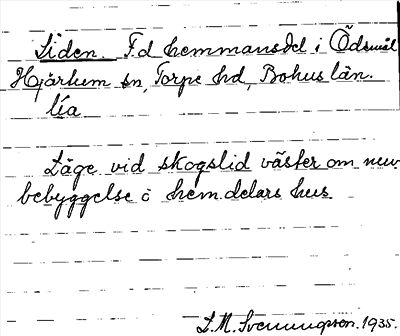 Liden. F.d hemmansdel i Ödsmål
Hjärtum sn, Torpe hd, Bohus län.
lía
Läge vid skogslid väster om nuv.
bebyggelse å hem.delars hus
L.M. Svenungsson. 1935.